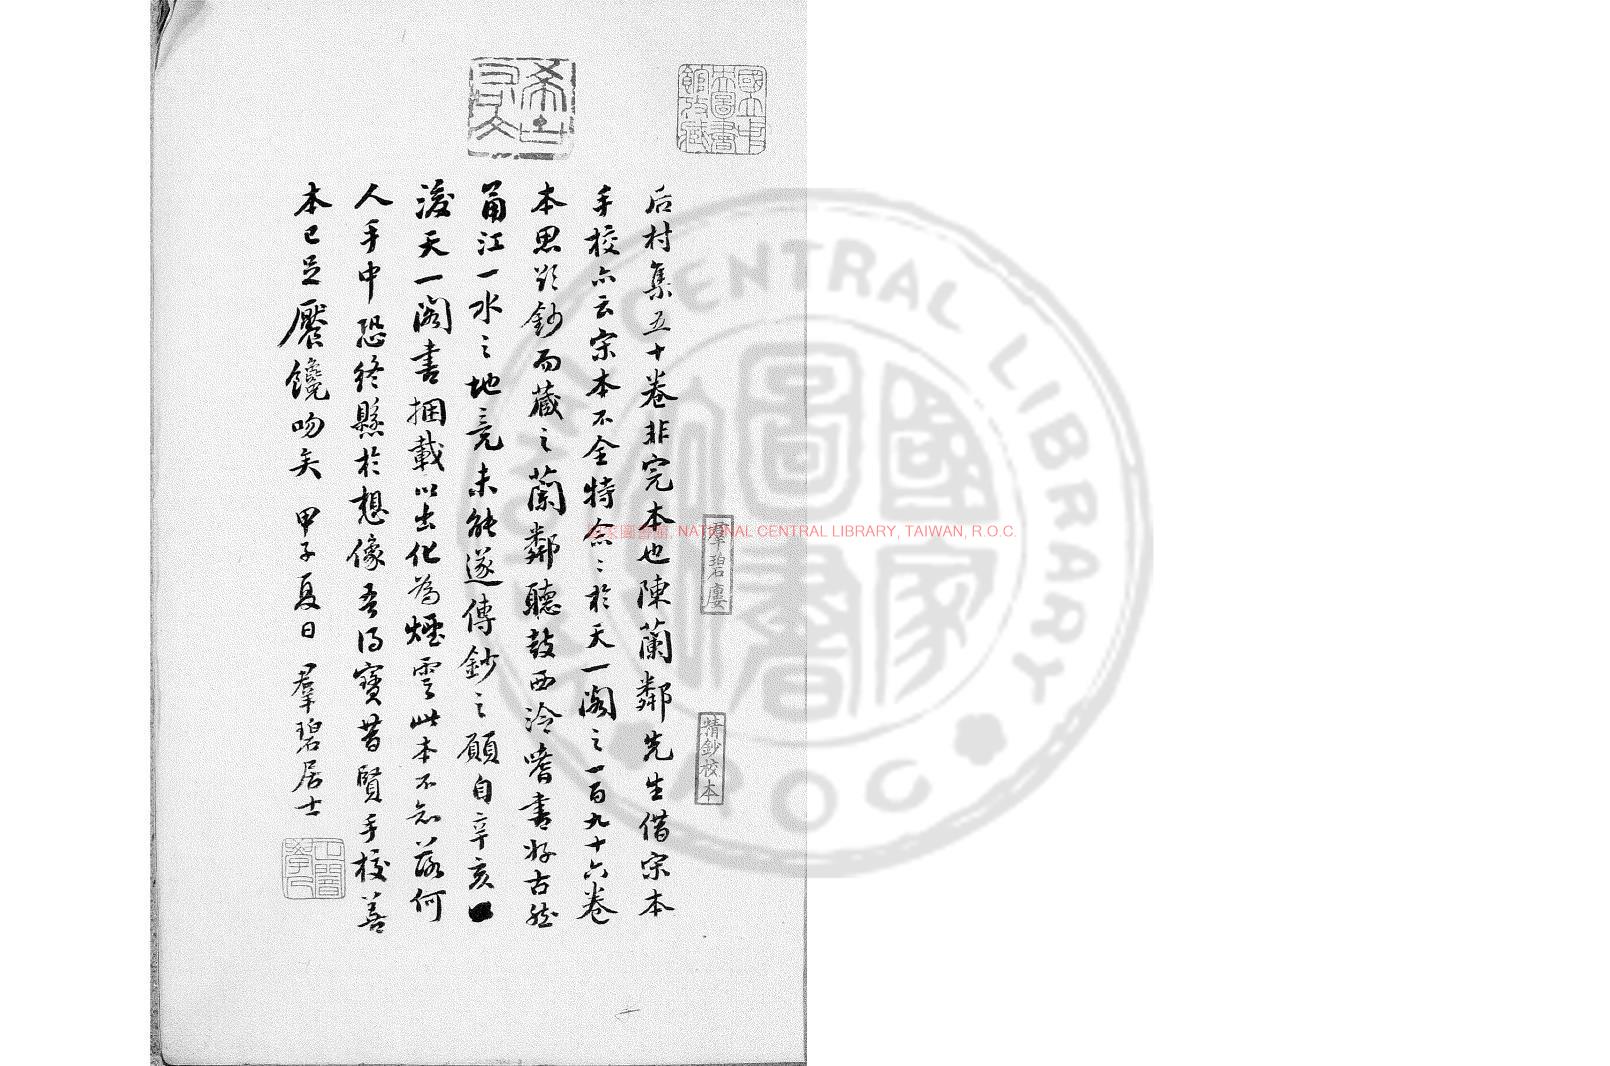 國立中央圖書館收藏
羣碧廔
精鈔校本
后村集五十卷非完本也陳蘭鄰先生借宋本
手校亦云宋本不全特念念於天一閣之一百九十六卷
本思欲鈔而藏之蘭鄰聽鼓西泠嗜書好古然
甬江一水之地竟未能遂傳鈔之願自辛亥
後天一閣書捆載以出化為煙雲此本不知落何
人手中恐終懸於想像吾得寶昔賢手校善
本已足饜饞吻矣 甲子夏日 羣碧居士
國家圖書館, NATIONAL CENTRAL LIBRARY, TAIWAN, R.O.C.
CENTRAL LIBRARY
國家圖書
ROC